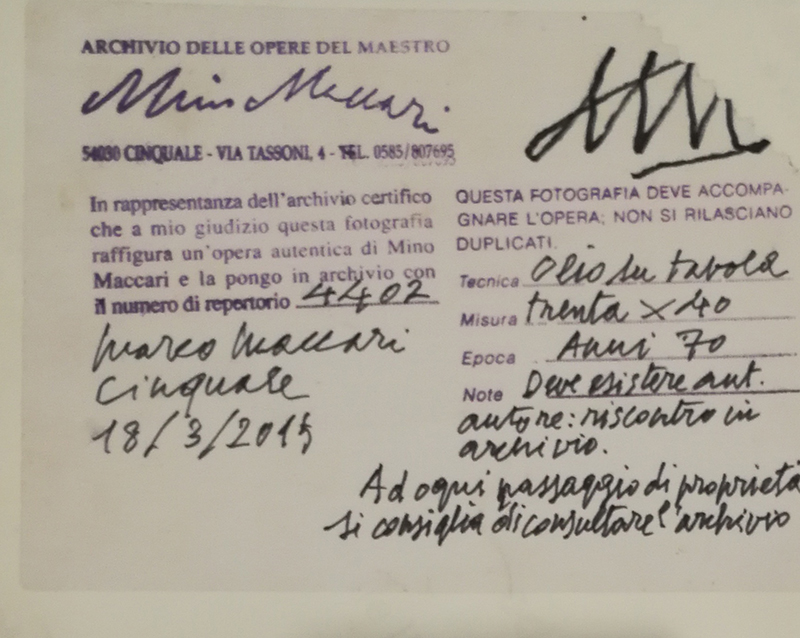 ARCHIVIO DELLE OPERE DEL MAESTRO
Mino Maccari
54030 CINQUALE - VIA TASSONI, 4 - TEL. 0585/807695
In rappresentanza dell'archivio certifico
che a mio giudizio questa fotografia
raffigura un'opera autentica di Mino
Maccari e la pongo in archivio con
il numero di repertorio 4402
Marco Maccari
Cinquale
18/3/2015
QUESTA FOTOGRAFIA DEVE ACCOMPA-
GNARE L'OPERA; NON SI RILASCIANO
DUPLICATI.
Tecnica Olio su tavola
Misura trenta x 40
Epoca Anni 70
Note Deve esistere aut.
autore: riscontro in
archivio.
Ad ogni passaggio di proprietà
si consiglia di consultare l'archivio